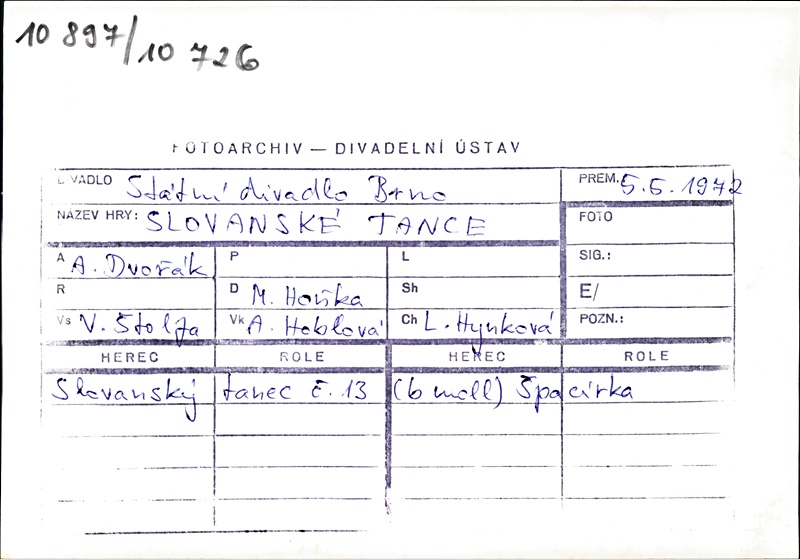 10 897/10 726
FOTOARCHIV — DIVADELNÍ ÚSTAV
DIVADLO Státní divadlo Brno PREM. 5.5.1972
NÁZEV HRY: SLOVANSKÉ TANCE FOTO
A A. Dvořák P L SIG.:
R D M. Houška Sh E/
Vs V. Štolfa Vk A. Heblová Ch L. Hynková POZN.:
HEREC ROLE HEREC ROLE
Slovanský tanec č. 13 (b moll) Špacírka